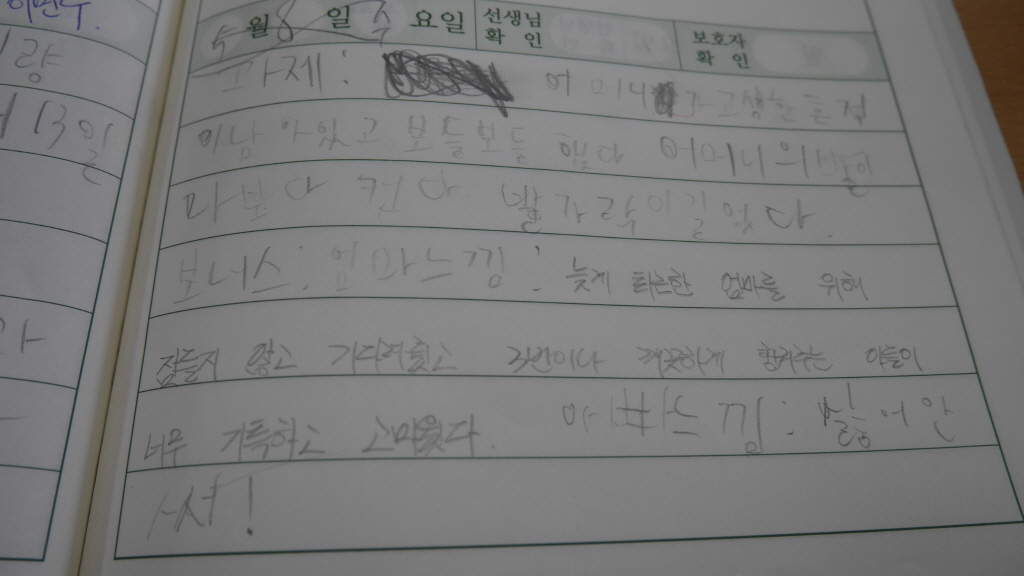 이현우.
월 8 일 요일 선생님 확인 보호자 확인
과제: 어머니가 고생한 흔적
이 남아있고 보들보들 했다 어머니의 발은
나보다 컸다 발가락이 길었다.
보너스: 엄마느낌: 늦게 퇴근한 엄마를 위해
잠들지 않고 기다려줬고 2번이나 깨끗하게 헹궈주는 아들이
너무 기특하고 고마웠다. 아빠느낌: 싫어 안
씻셔!
량
13일